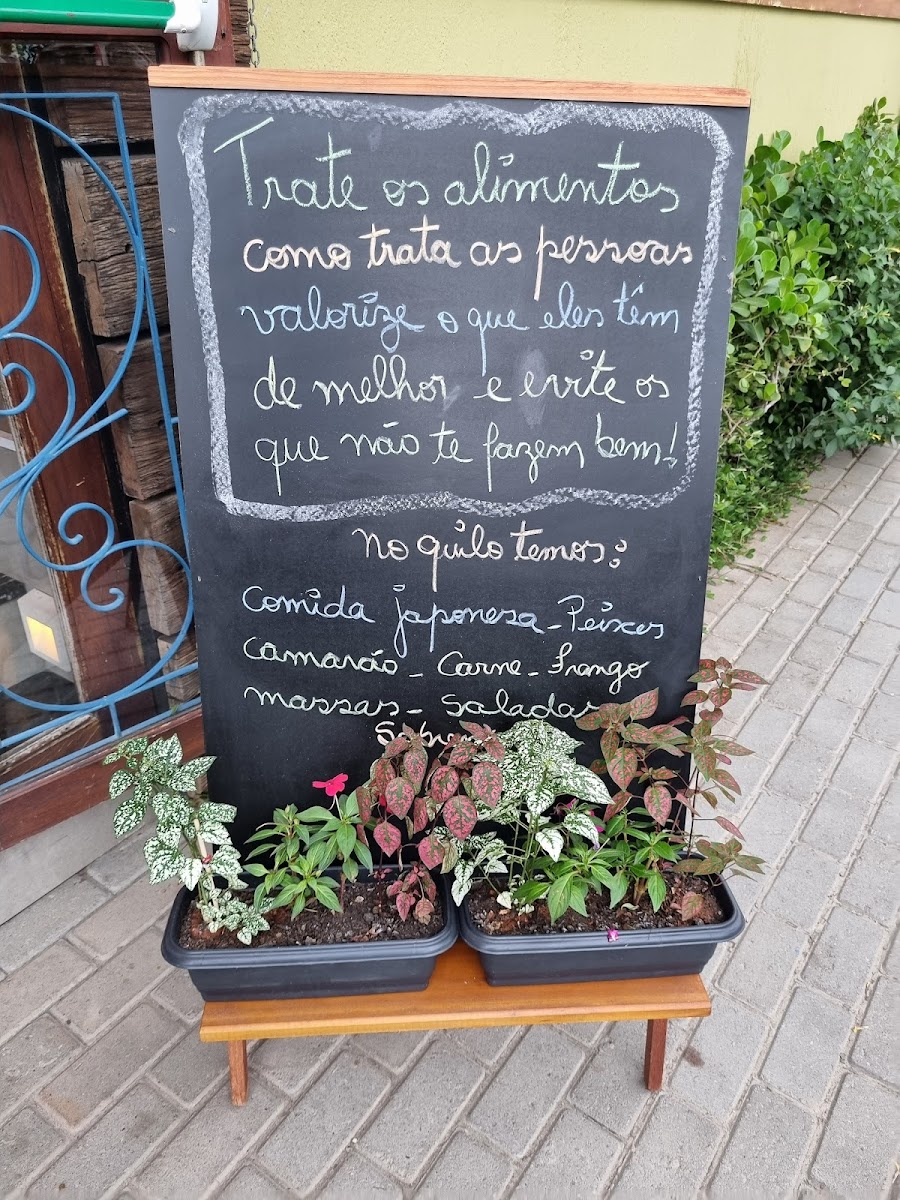 Trate os alimentos
como trata as pessoas
valorize o que eles têm
de melhor e evite os
que não te fazem bem!
No quilo temos:
Comida japonesa - Peixes
Camarão - Carne - Frango
massas - Saladas